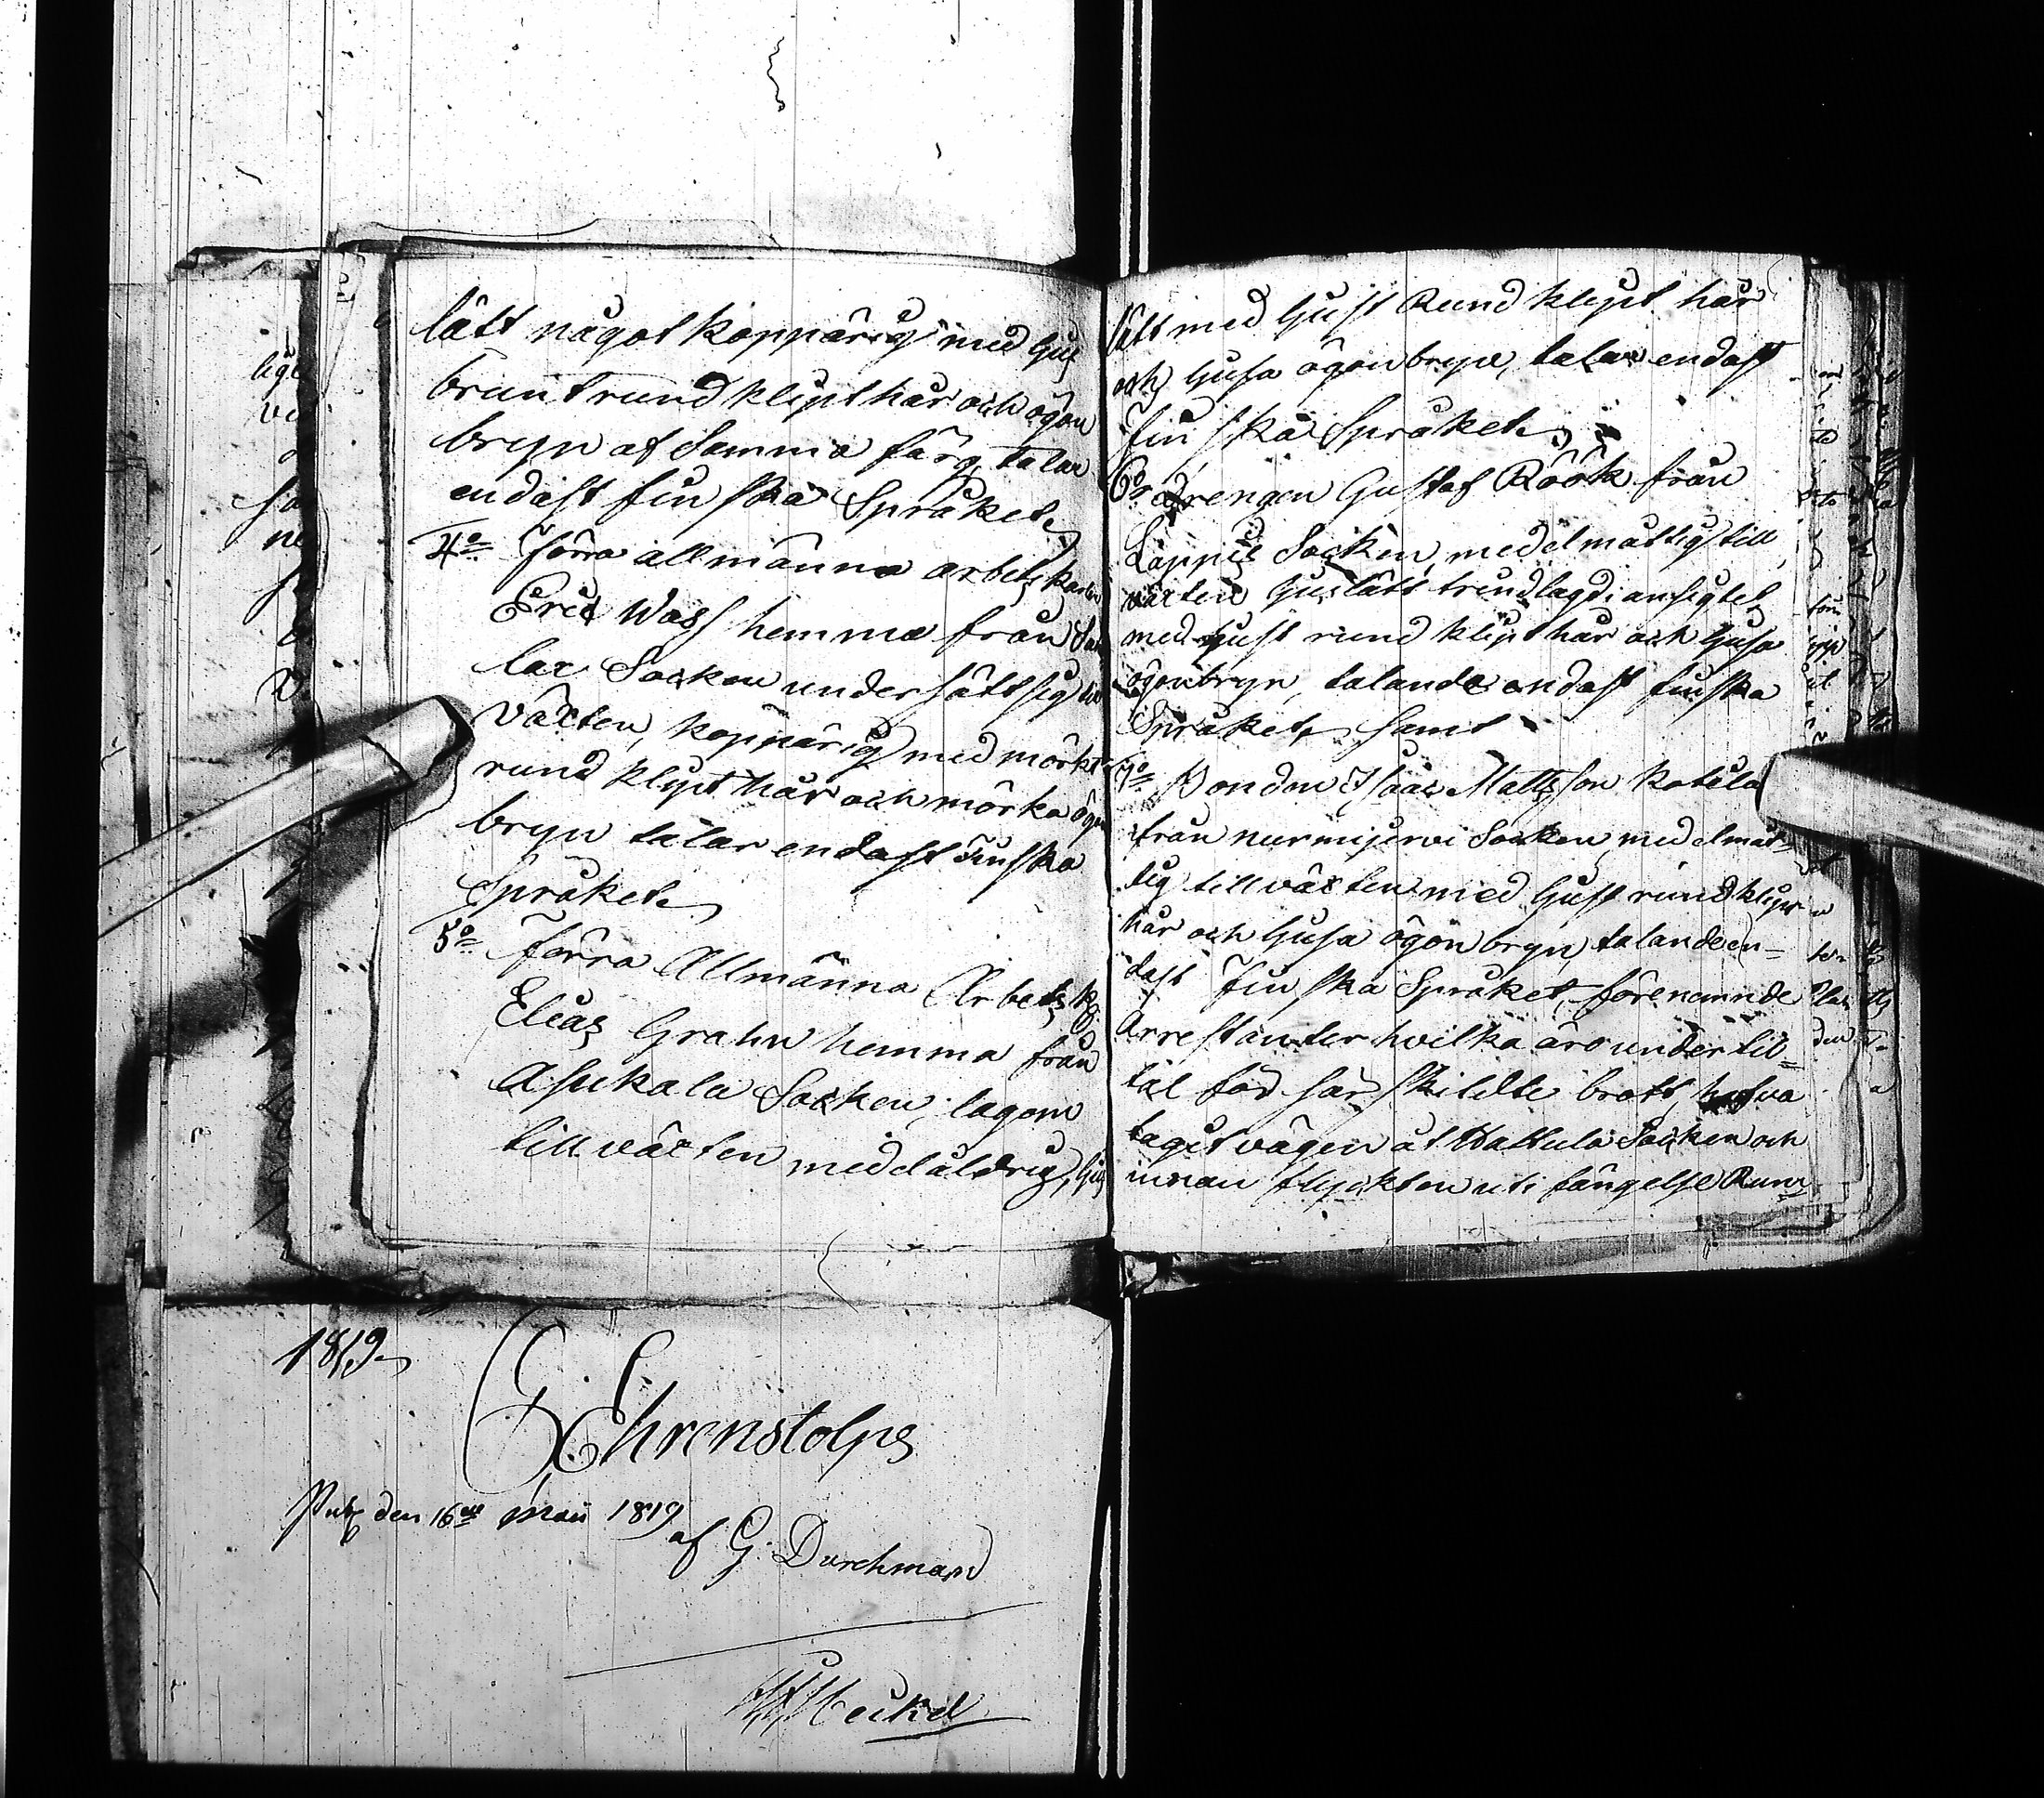 lätt något koppärig med ljus
brunt rund klipt hår och ögon
bryn af Samma färg, talar
endast finska Språket
4o förra allmänna arbets karlen
Eric Wass hemma från
lax Socken undersättsig till
växten, koppärig med mörkt
rund klipt hår och mörka ögon
bryn talar endast finska
Språket
5o förra Allmänna Arbets k
Elias Grahn hemma från
Asikala Socken, lagom
till växten medelåldrig, ljus
lätt med ljust Rund klipt hår
och ljusa ögonbryn, talar endast
finska Språket
6o Drengen Gustaf Röök från
Lappis Socken, medelmåttig till
växten ljuslätt trindlagd i ansigtet
med ljust rund klipt hår och ljusa
ögonbryn, talande endast finska
Språket, samt
7o Bonden Isaac Mattsson Kotila
från nurmijervi Socken, medelmåt-
tig till växten med ljust rund klipt
hår och ljusa ögonbryn, talande en-
dast finska Språket, förenämnde
Arrestanter hvilka äro under til-
tal för särskildte brott, hafva
tagit vägen åt Hattula Socken och
innan flyckten uti fängelse Rum
1819
G Ehrenstolpe
Pub. den 16de Maii 1819
af G. Durchman